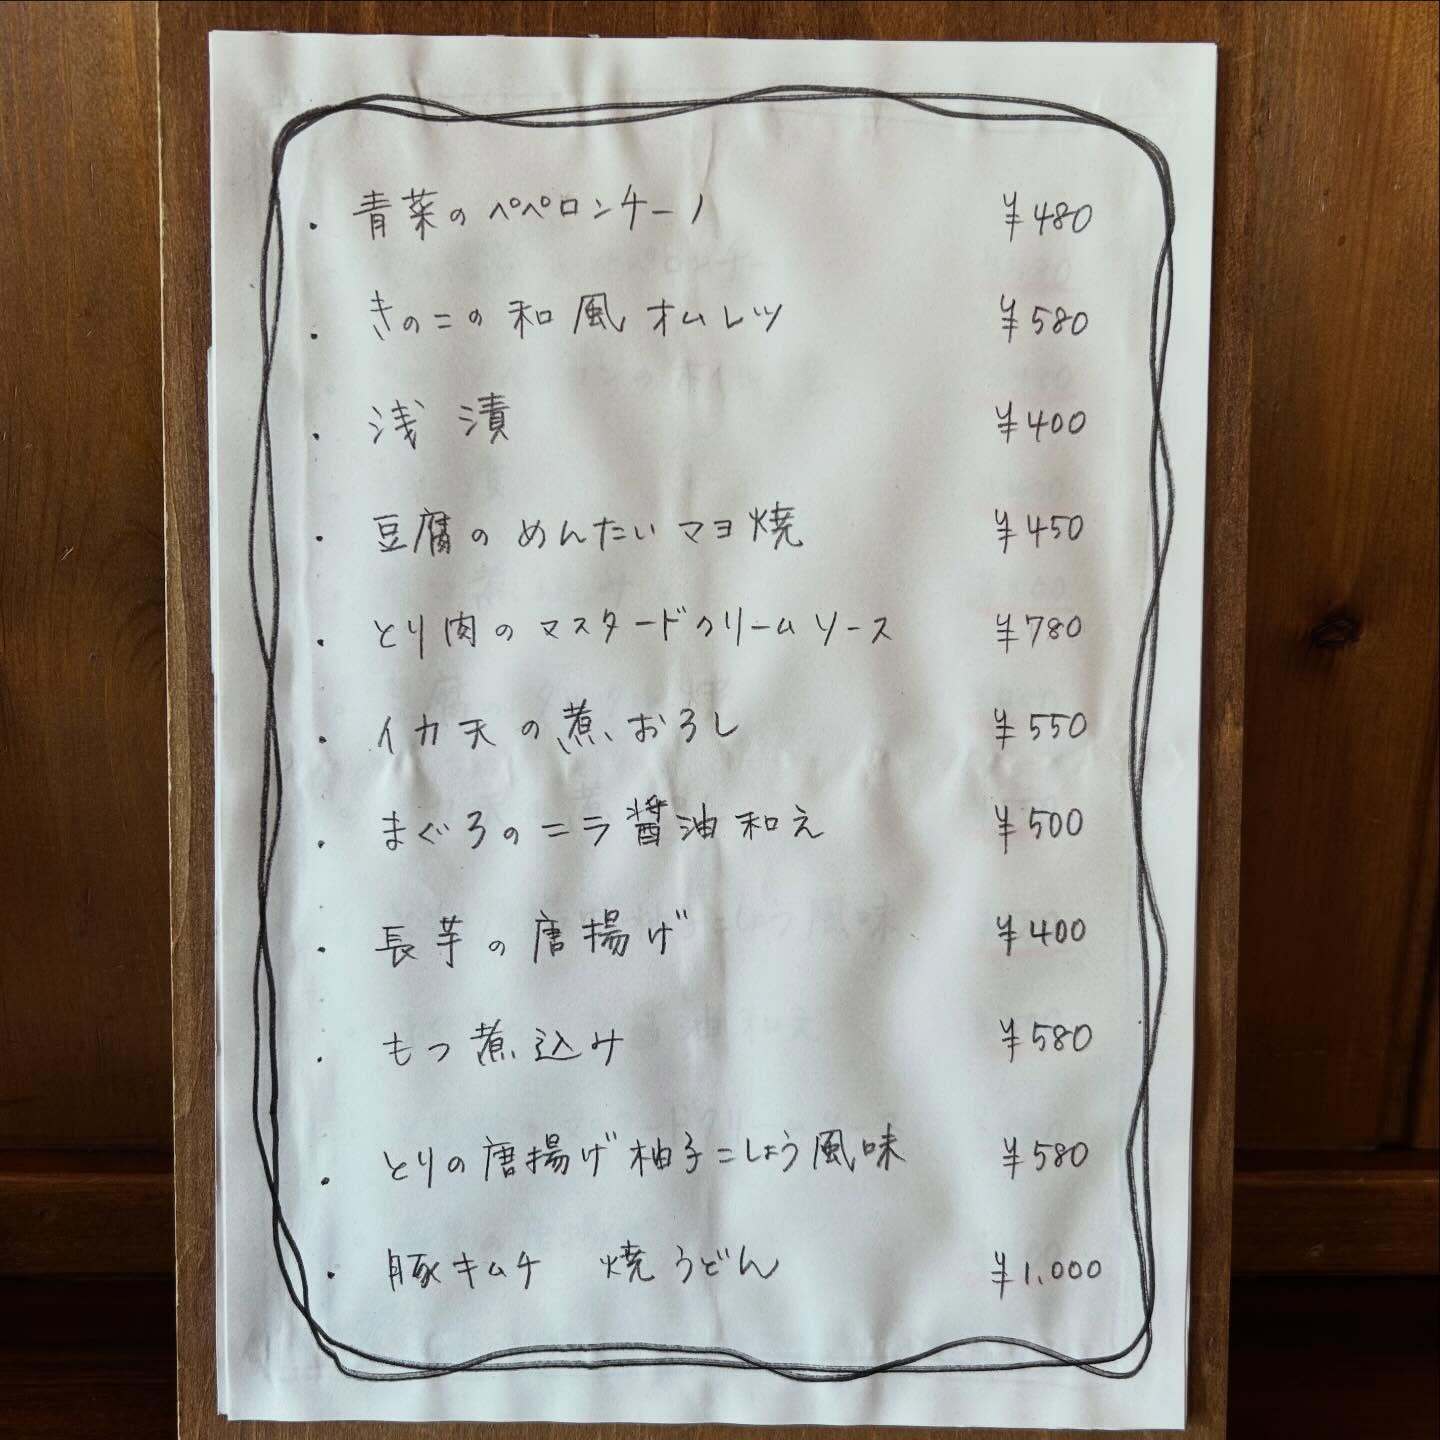 ・青菜のペペロンチーノ ¥480
・きのこの和風オムレツ ¥580
・浅漬 ¥400
・豆腐のめんたいマヨ焼 ¥450
・とり肉のマスタードクリームソース ¥780
・イカ天の煮おろし ¥550
・まぐろのニラ醤油和え ¥500
・長芋の唐揚げ ¥400
・もつ煮込み ¥580
・とりの唐揚げ柚子こしょう風味 ¥580
・豚キムチ 焼うどん ¥1.000